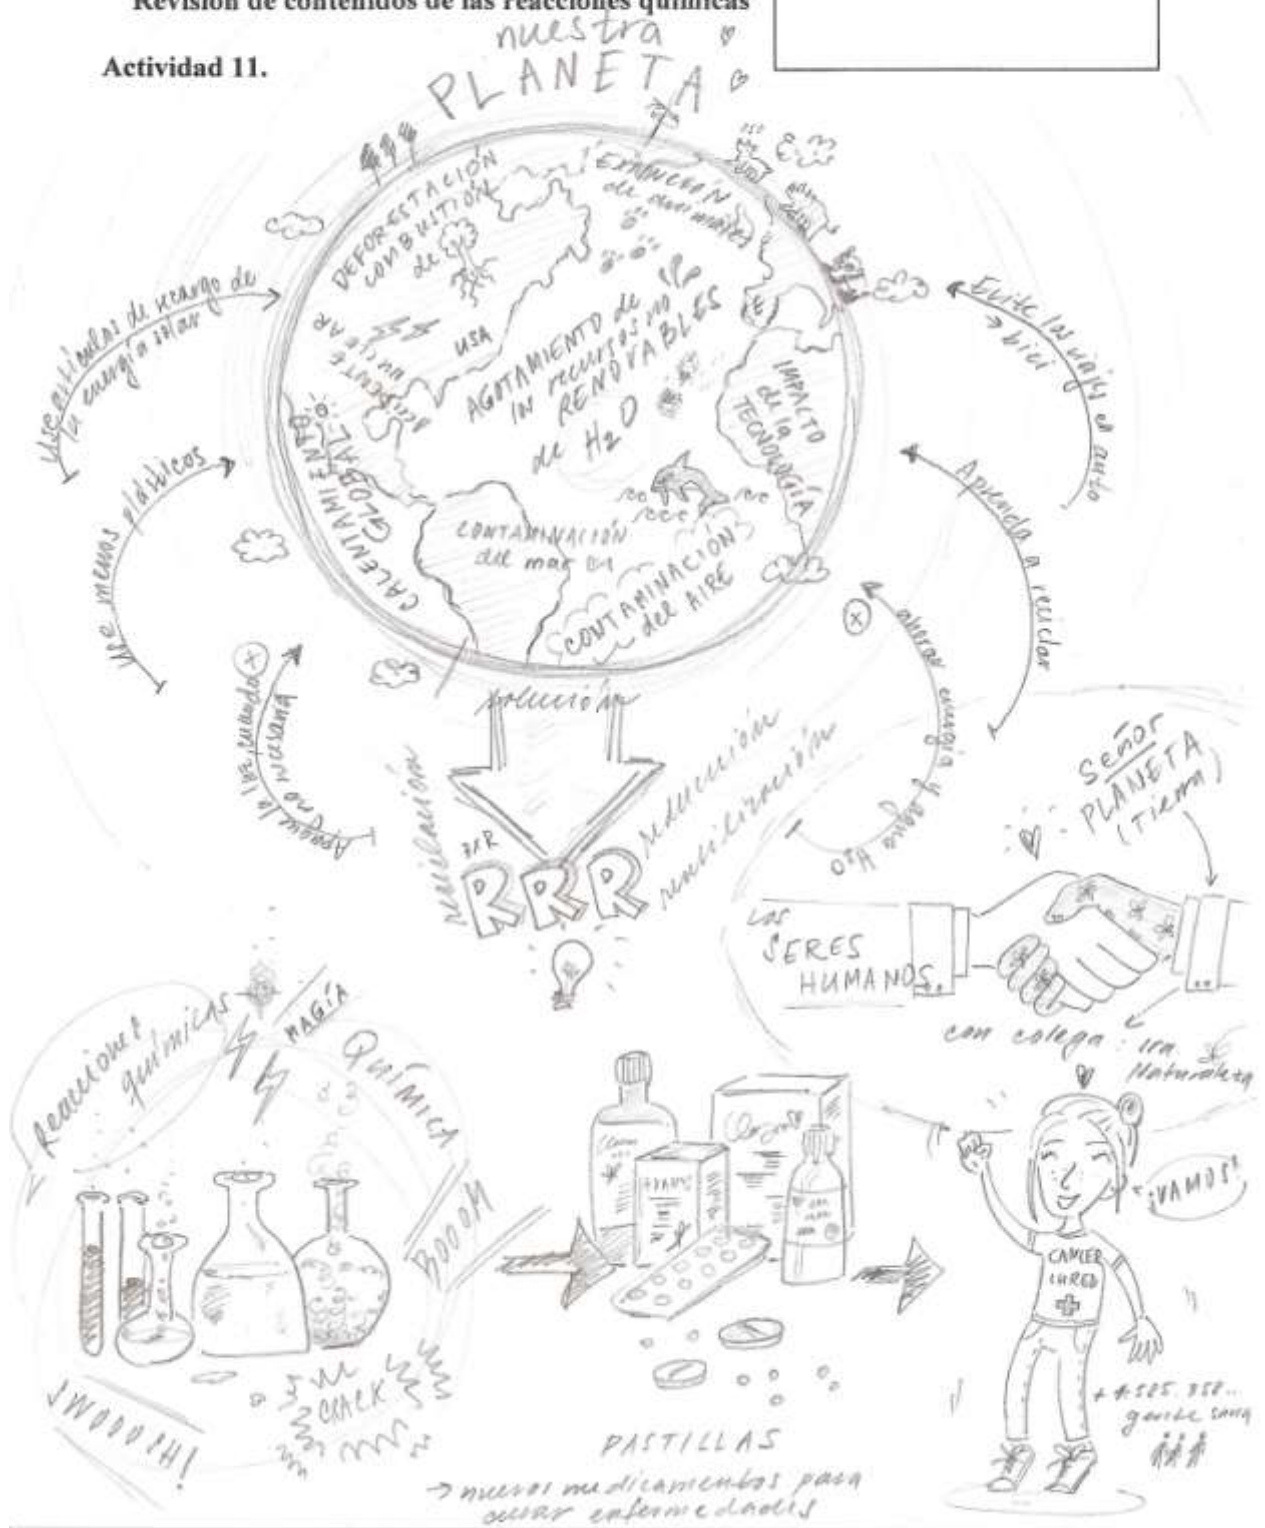 Revisión de contenidos de las reacciones químicas
Actividad 11.
nuestra
PLANETA
DEFORESTACIÓN
COMBUSTIÓN
de
EXTINCCIÓN
de animales
USA
AGOTAMIENTO de
los recursos no
RENOVABLES
de H2O
E
IMPACTO
de la
TECNOLOGÍA
NUCLEAR
CALENTAMIENTO
GLOBAL
CONTAMINACIÓN
del mar
CONTAMINACIÓN
del AIRE
Use artículos de recargo de
la energía solar
Use menos plásticos
Apague la luz cuando
no necesaria
Evite los viajes el auto
→ bici
Aprenda a reciclar
ahorar energía y agua H2O
solución
reciclación
reducción
reutilización
RRR
Señor
PLANETA
(Tierra)
Los
SERES
HUMANOS
con colega: la
Naturaleza
reacciones
químicas
MAGÍA
QUÍMICA
BOOOM
CRACK
SWOOOSH!
PASTILLAS
→ nuevos medicamentos para
curar enfermedades
¡VAMOS!
CANCER
CURED
gente sana